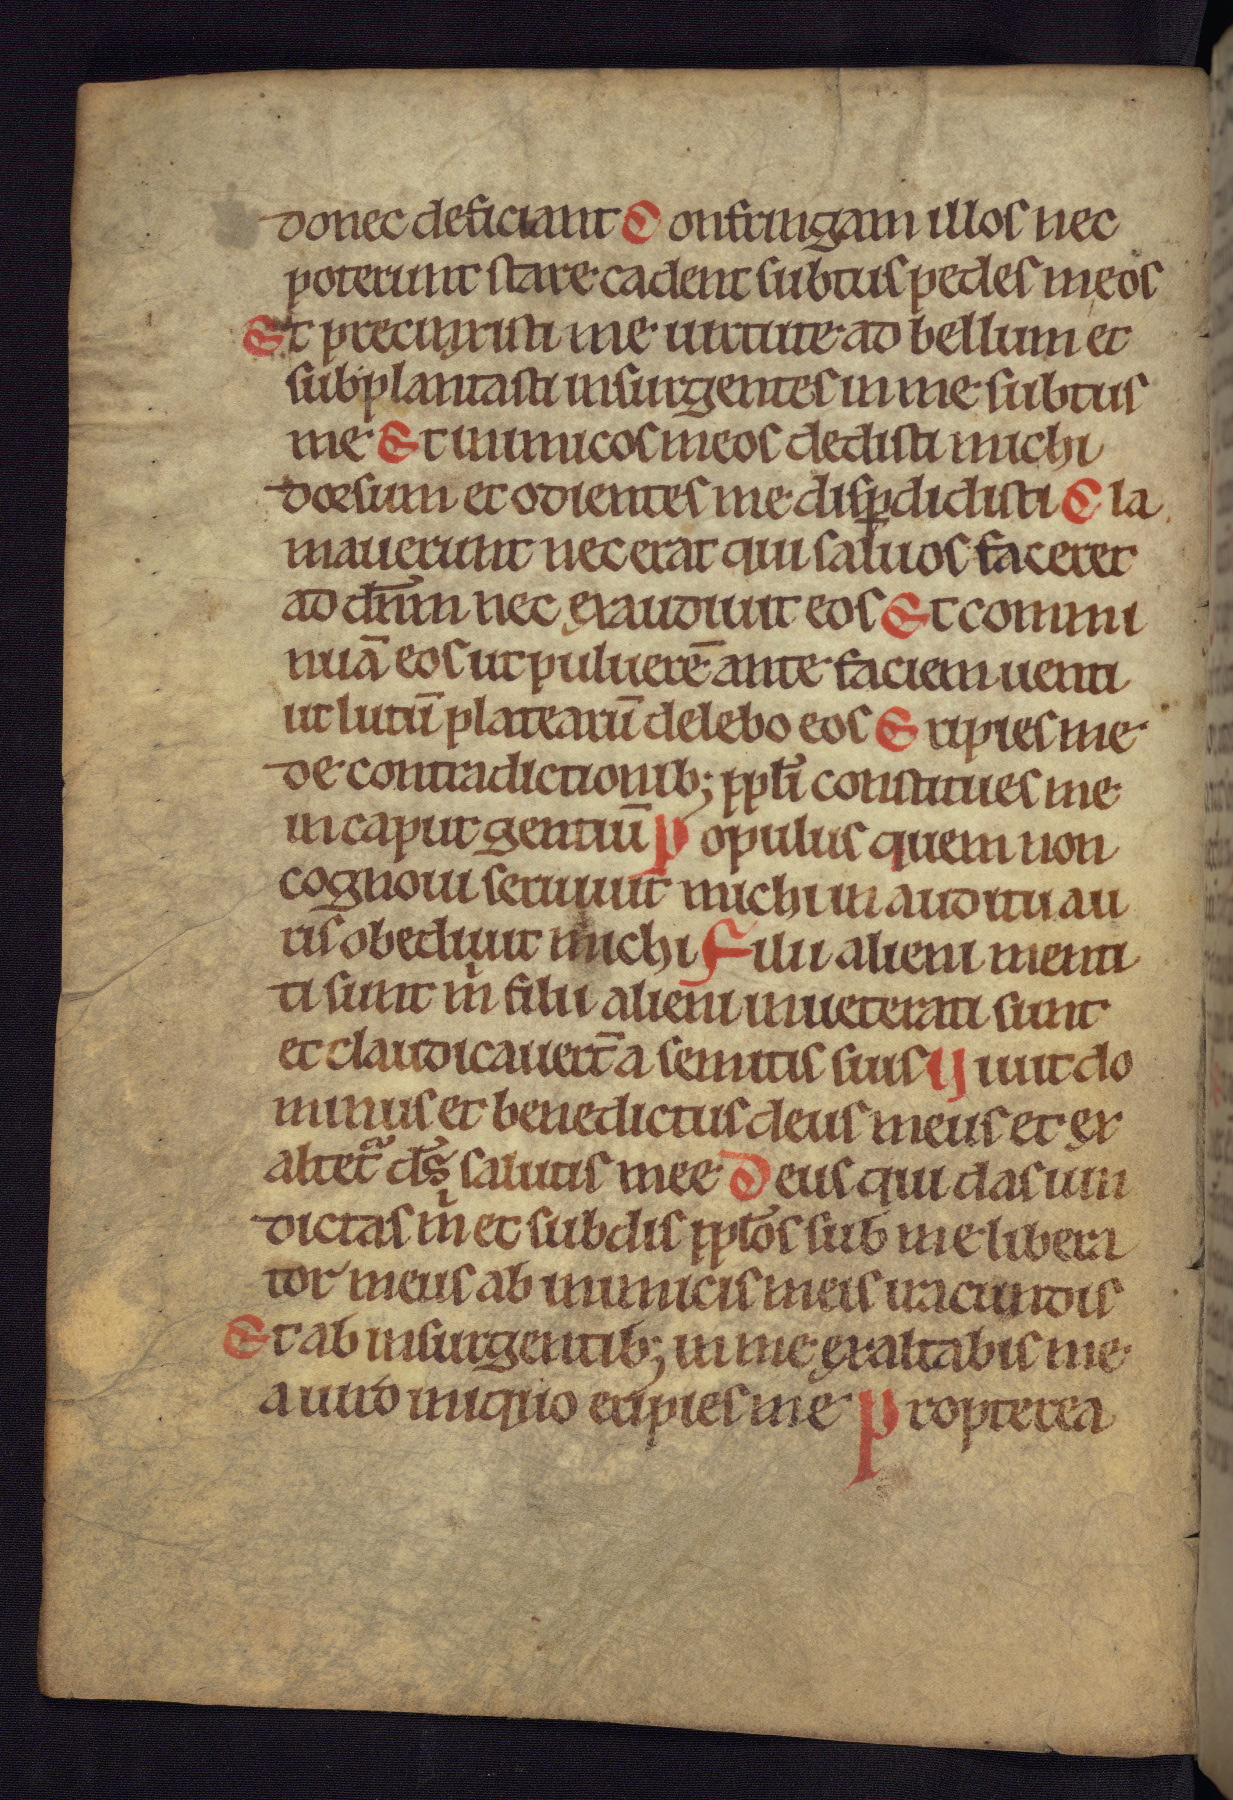 donec deficiant Confringam illos nec
poterunt stare cadent subtus pedes meos
Et precinxisti me uirtute ad bellum et
subplantasti insurgentes in me subtus
me Et inimicos meos dedisti michi
dorsum et odientes me disꝑdidisti Cla
mauerunt nec erat qui saluos faceret
ad dn̄m nec exaudiuit eos Et commi
nuā eos ut puluerē ante faciem uenti
ut lutū platearū delebo eos Eripies me
de contradictionib; ppl̄i constitues me
in caput gentiū Populus quem non
cognoui seruiuit michi in auditu au
ris obediuit michi Filii alieni menti
ti sunt m̍ filii alieni inueterati sunt
et claudicauert̄ a semitis suis Uiuit do
minus et benedictus deus meus et ex
altetᷓ ds̄ salutis mee Deus qui das uin
dictas m̍ et subdis ppl̄os sub me libera
tor meus ab inimicis meis iracundis
Et ab insurgentib; in me exaltabis me
a uiro iniquo eripies me Propterea